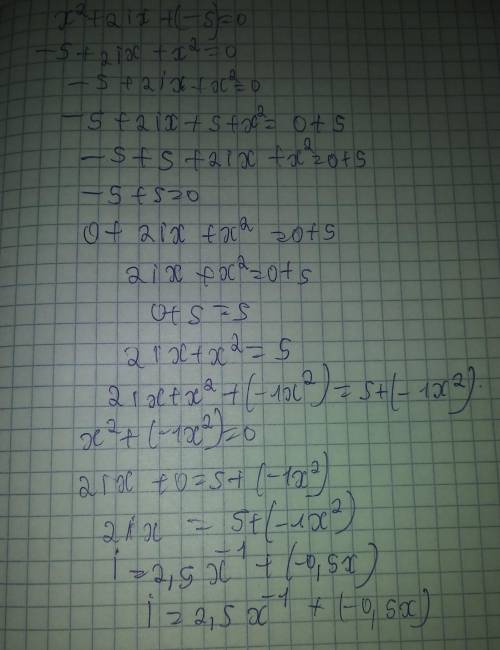 x²+2ix+(-5)=0
-5+2ix+x²=0
-5+2ix+x²=0
-5+2ix+5+x²= 0+5
-5+5+2ix+x²=0+5
-5+5=0
0+ 2ix +x² =0+5
2ix +x²=0+5
0+5=5
2ix+x²=5
2ix+x²+(-1x²)=5+(-1x²).
x²+(-1x²)=0
2ix+0=5+(-1x²)
2ix = 5+(-1x²)
i=2,5x⁻¹+(-0,5x)
i=2,5x⁻¹+(-0,5x)